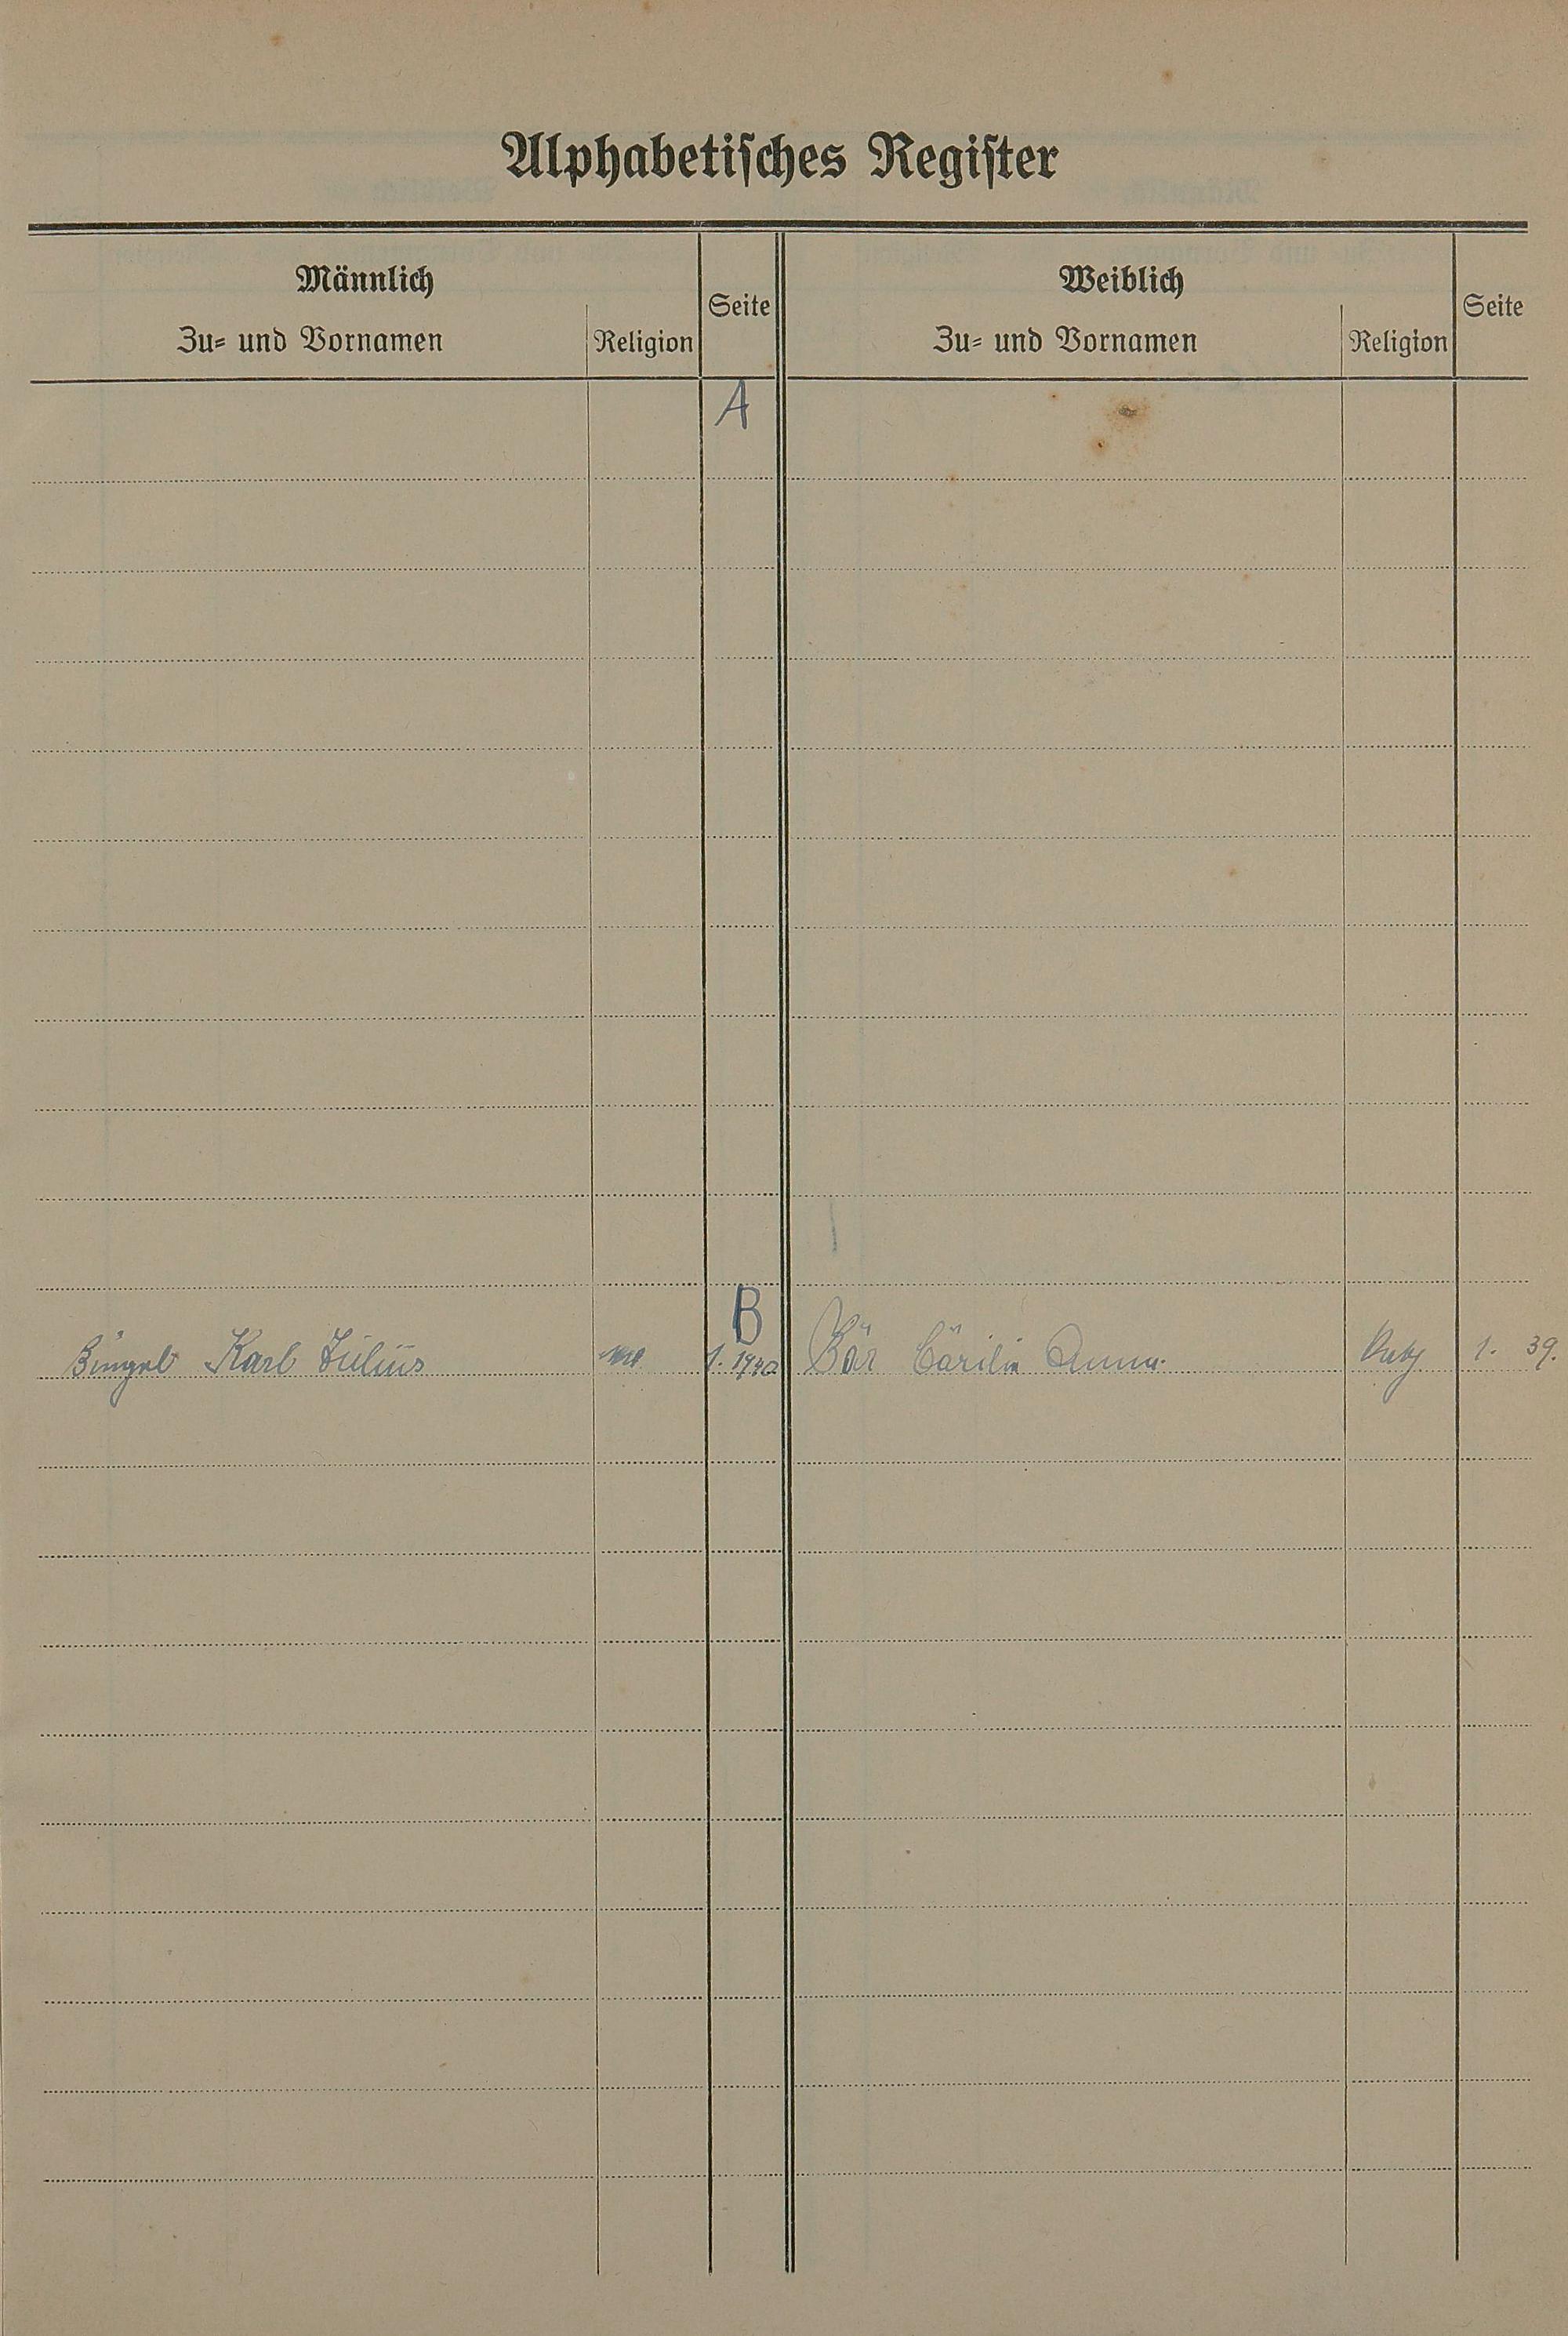 Alphabetisches Register
Männlich
Zu- und Vornamen
Religion
Seite
Weiblich
Zu- und Vornamen
Religion
Seite
A
B
Bingel Karl Julius 1. 1940
Bär Cäcilia Anna. 1. 39.